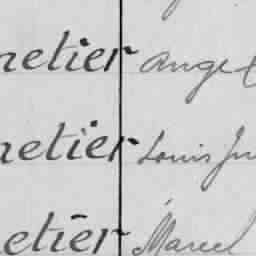 netier Ange
netier Louis Ju
etier Marcel